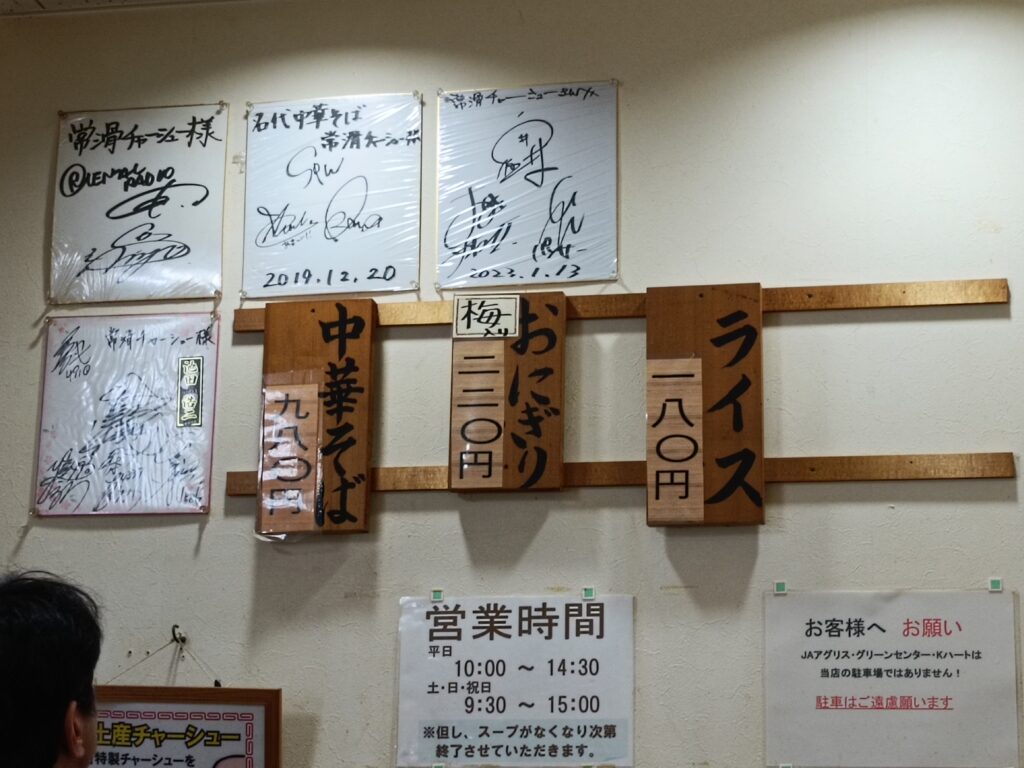 常滑チャーシュー様
RADIO
名代中華そば
常滑チャーシュー様
2019.12.20
常滑チャーシュー
2023.1.13
常滑チャーシュー様
中華そば
九八〇円
おにぎり
梅入り
二二〇円
ライス
一八〇円
営業時間
平日
10:00 ～ 14:30
土・日・祝日
9:30 ～ 15:00
※但し、スープがなくなり次第
終了させていただきます。
お客様へ お願い
JAアグリス・グリーンセンター・Kハートは
当店の駐車場ではありません！
駐車はご遠慮願います
土産チャーシュー
特製チャーシューを